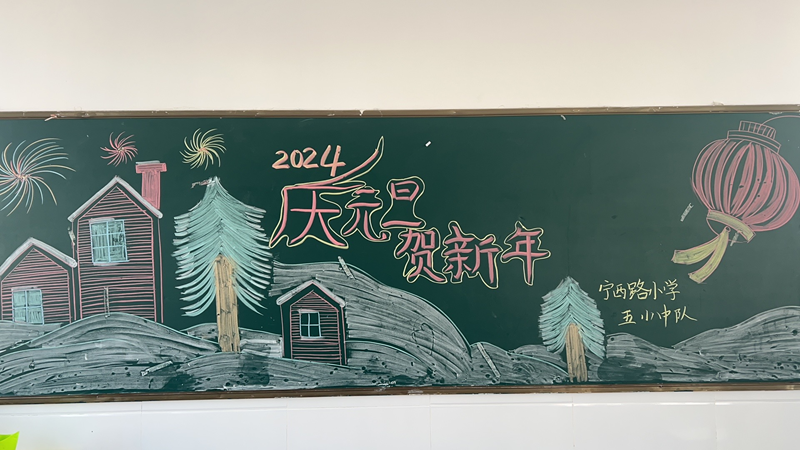 2024
庆元旦
贺新年
宁西路小学
五小中队